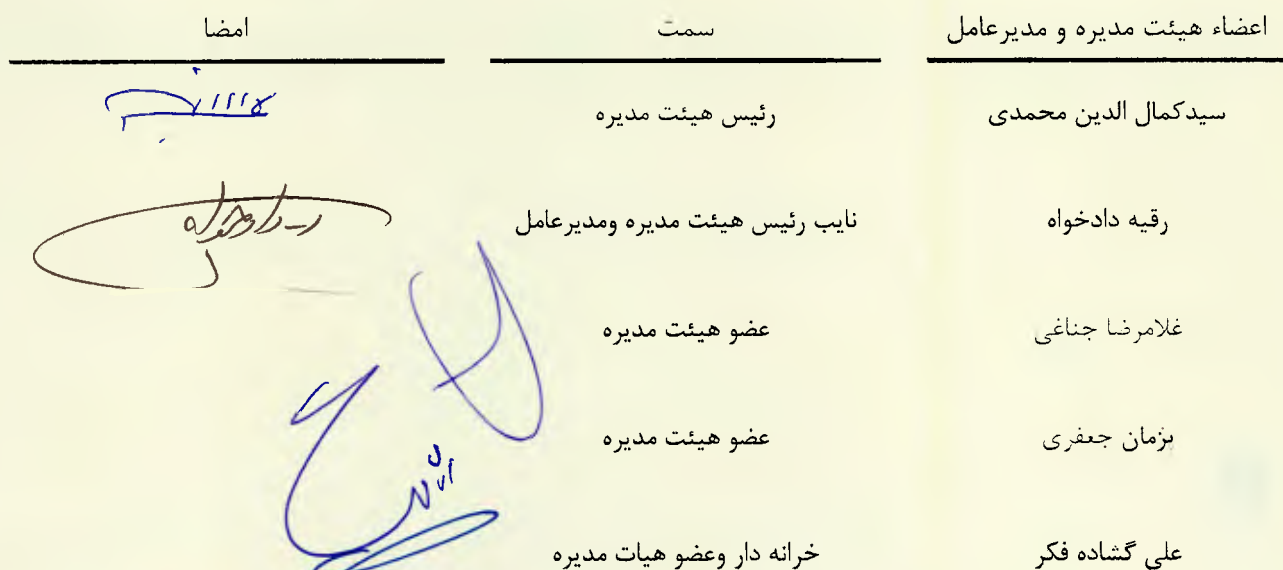 اعضاء هیئت مدیره و مدیرعامل سمت امضا
سیدکمال الدین محمدی رئیس هیئت مدیره
رقیه دادخواه نایب رئیس هیئت مدیره ومدیرعامل
غلامرضا جناغی عضو هیئت مدیره
بزمان جعفری عضو هیئت مدیره
علی گشاده فکر خرانه دار وعضو هیات مدیره